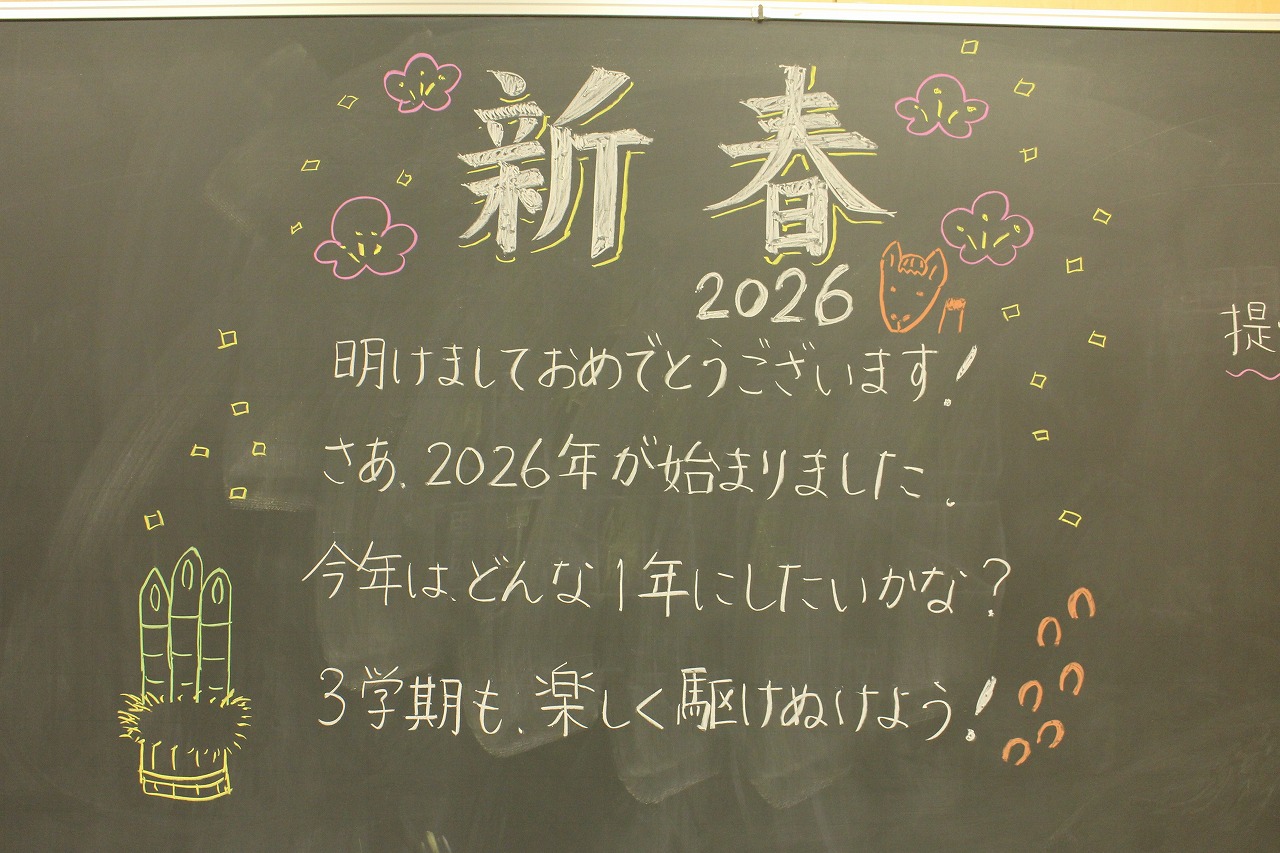 新春
2026
明けましておめでとうございます!
さあ、2026年が始まりました。
今年は、どんな1年にしたいかな?
3学期も、楽しく駆けぬけよう!
提